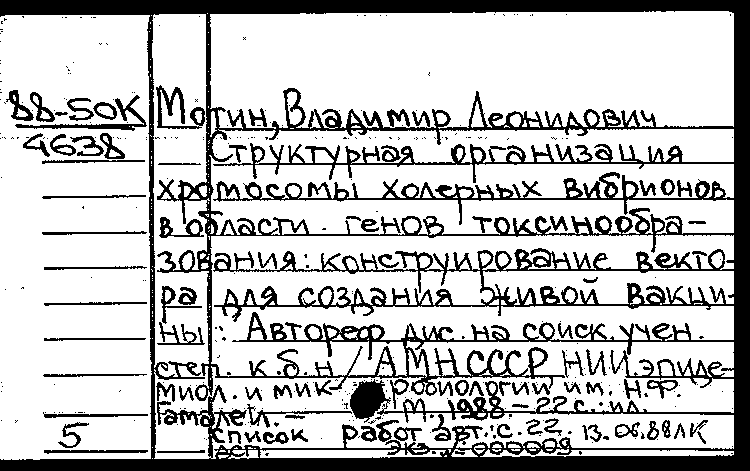 88-50К
4638
Мотин, Владимир Леонидович
Структурная организация
хромосомы холерных вибрионов
в области генов токсинообра-
зования: конструирование векто-
ра для создания живой вакци-
ны : Автореф дис. на соиск. учен.
степ. к.б.н / АМН СССР НИИ эпиде-
миол. и мик- робиологии им. Н.Ф.
Гамалеи. - М., 1988. - 22 с.: ил.
5
список работ авт.: с. 22. 13.06.88 ЛК
дсп. экз. 000009.